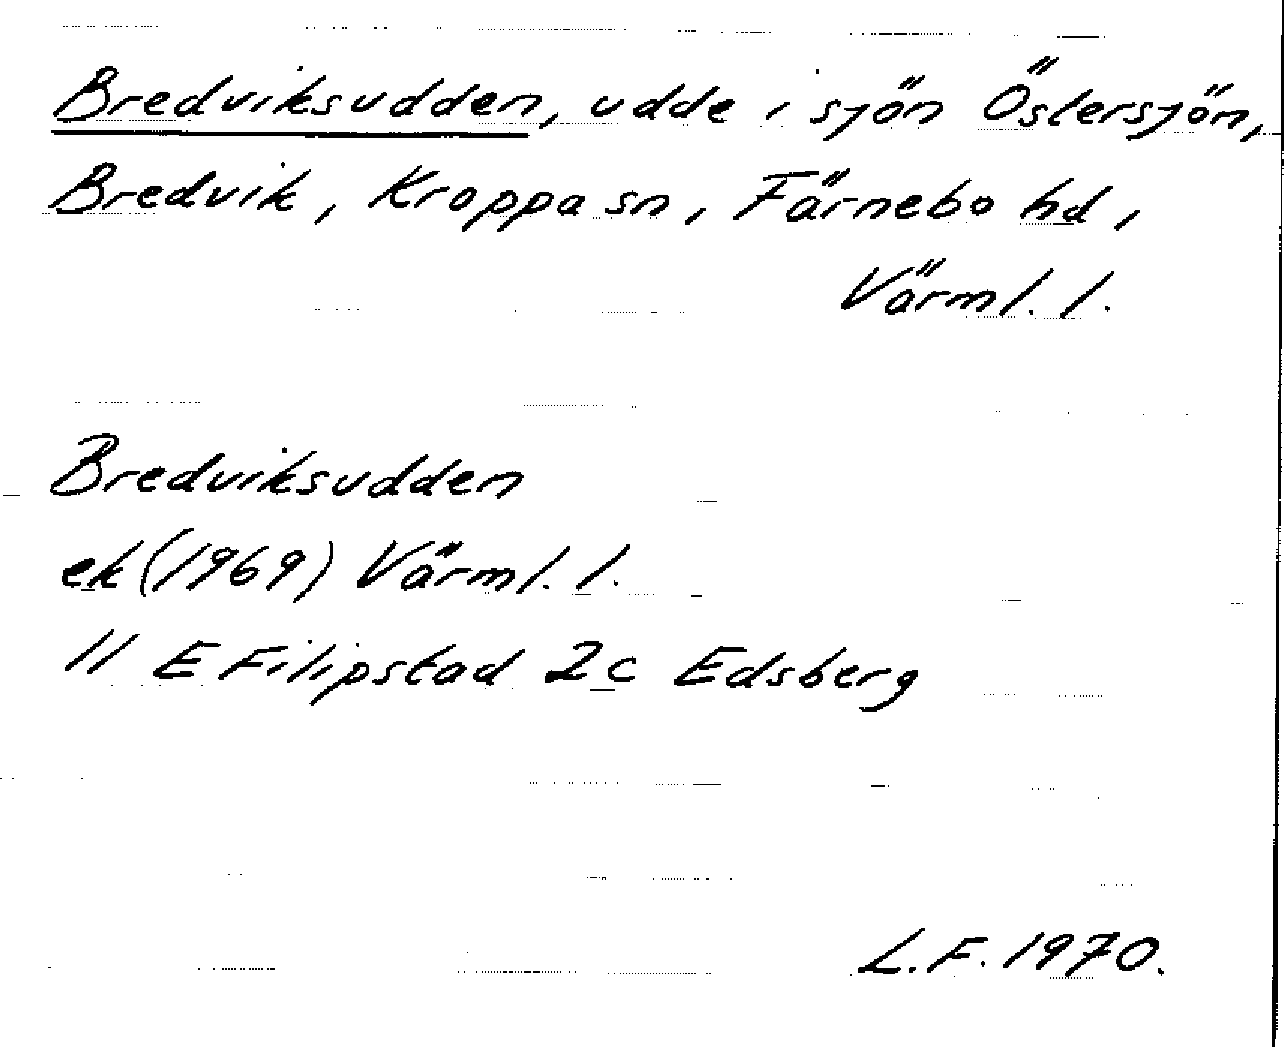 Bredviksudden, udde i sjön Östersjön,
Bredvik, Kroppa sn, Färnebo hd,
Värml. l.
Bredviksudden
ek (1969) Värml. l.
11 E Filipstad 2c Edsberg
L.F. 1970.